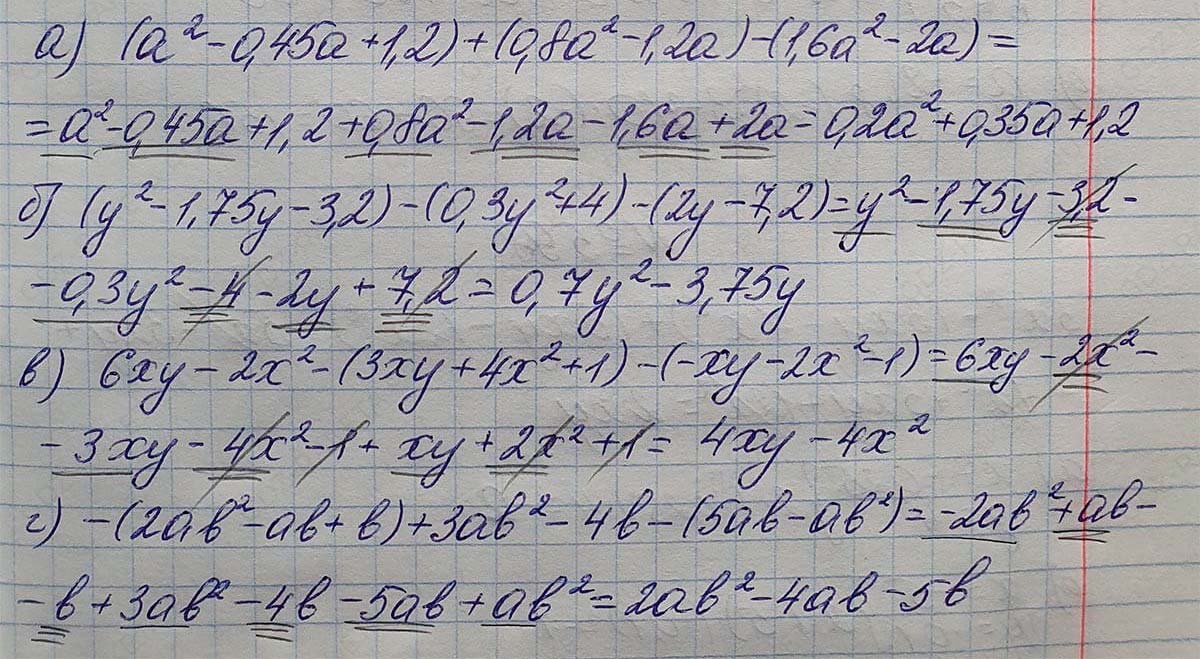 а) (a²-0,45a+1,2)+(0,8a²-1,2a)-(1,6a²-2a)=
=a²-0,45a+1,2+0,8a²-1,2a-1,6a+2a=0,2a²+0,35a+1,2
б) (y²-1,75y-3,2)-(0,3y²+4)-(2y-7,2)=y²-1,75y-3,2-
-0,3y²-4-2y+7,2=0,7y²-3,75y
в) 6xy-2x²-(3xy+4x²+1)-(-xy-2x²-1)=6xy-2x²-
-3xy-4x²-1+xy+2x²+1=4xy-4x²
г) -(2ab²-ab+b)+3ab²-4b-(5ab-ab²)=-2ab²+ab-
-b+3ab²-4b-5ab+ab²=2ab²-4ab-5b